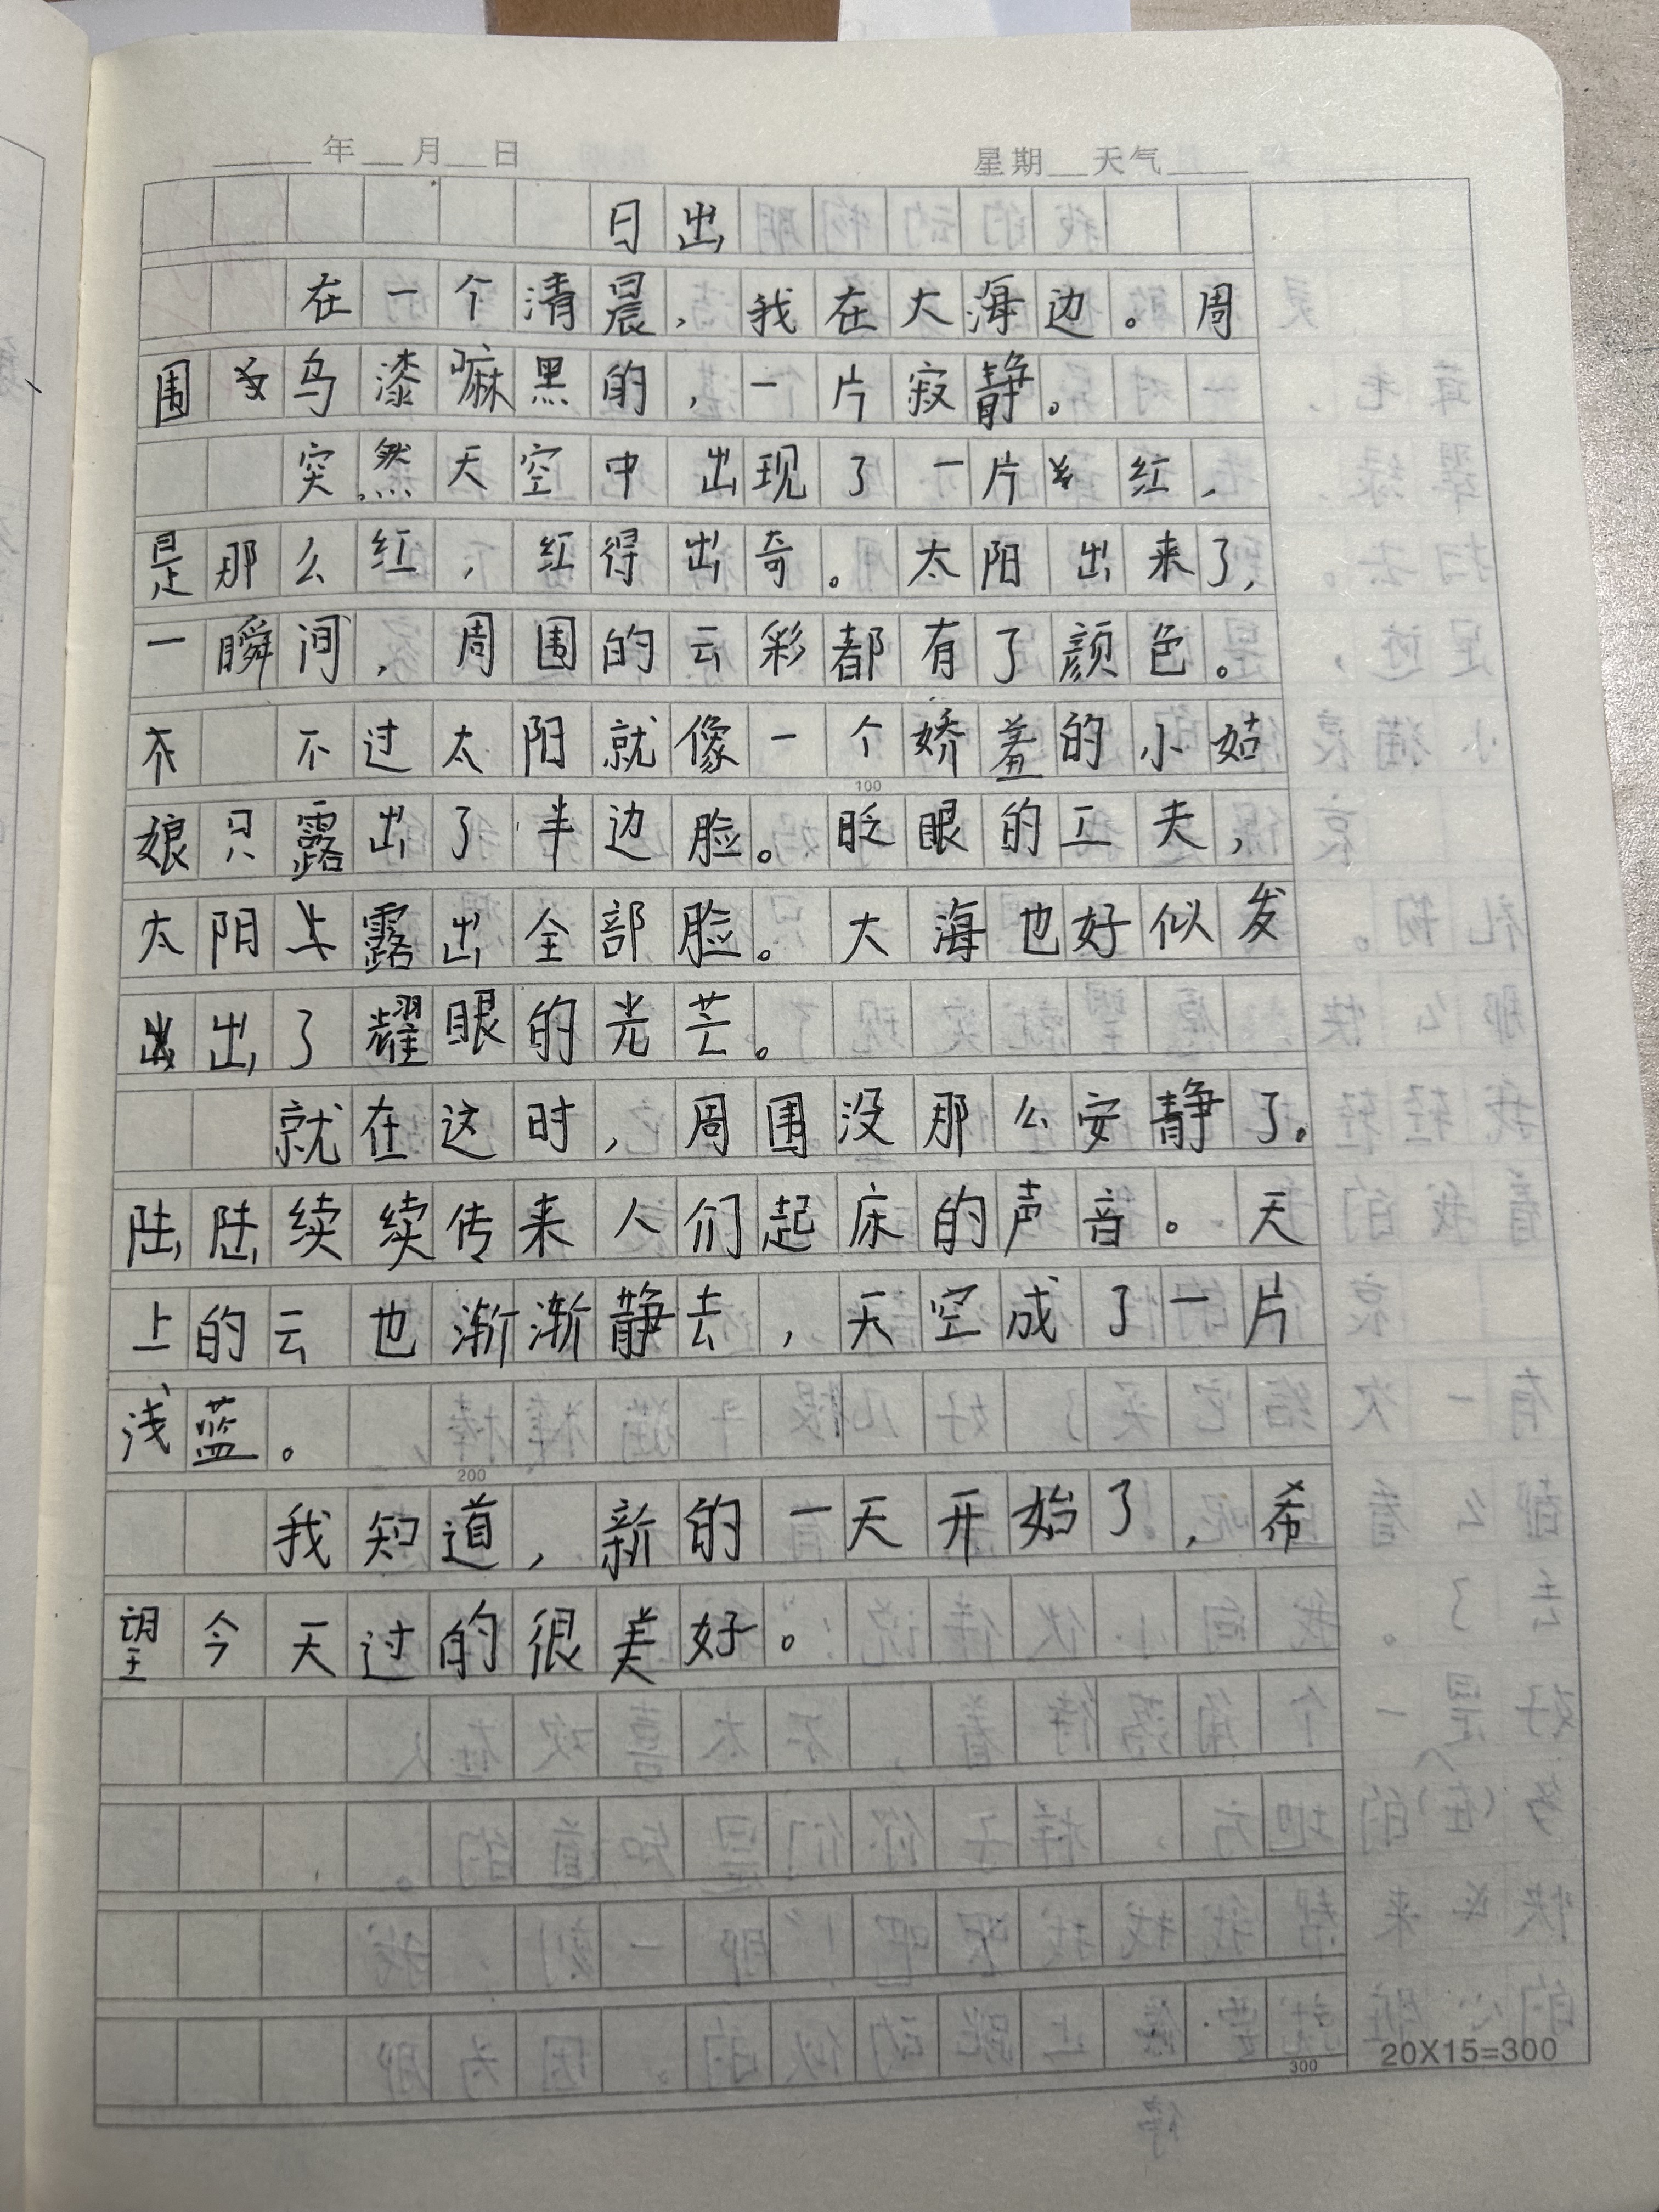 年 月 日 星期 天气
日出
在一个清晨，我在大海边。周
围乌漆嘛黑的，一片寂静。
突然天空中出现了一片红，
是那么红，红得出奇。太阳出来了，
一瞬间，周围的云彩都有了颜色。
不 不过太阳就像一个娇羞的小姑
100
娘只露出了半边脸。眨眼的工夫，
太阳露出全部脸。大海也好似发
出了耀眼的光芒。
就在这时，周围没那么安静了。
陆陆续续传来人们起床的声音。天
上的云也渐渐静去，天空成了一片
浅蓝。
200
我知道，新的一天开始了，希
望今天过的很美好。
300
20X15=300